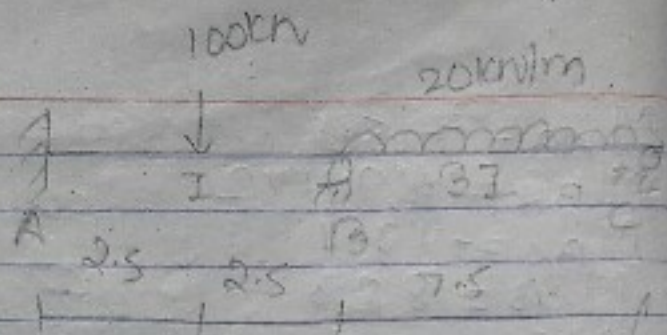 100kN
20kN/m
I 3I
A B C
2.5 2.5 7.5